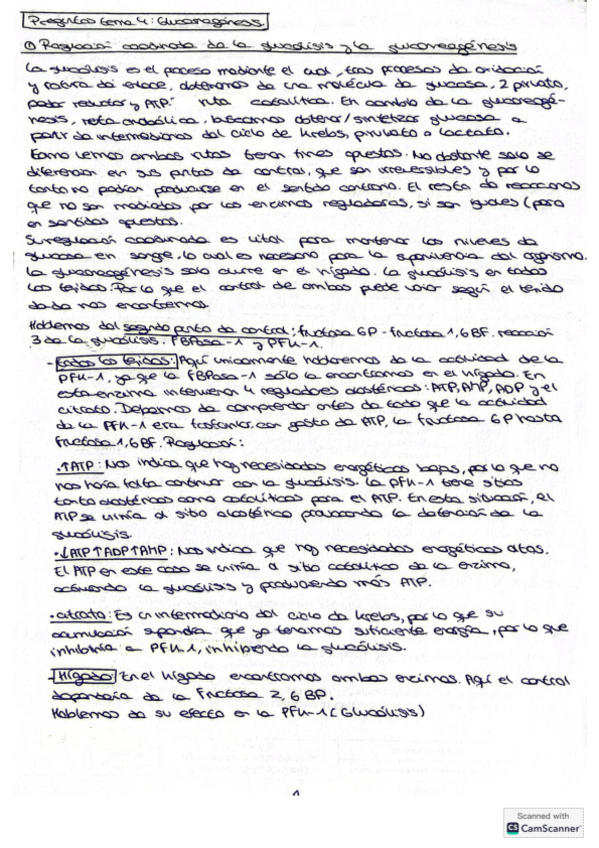 Preguntas tema 4: Gluconeogénesis
① Regulación coordinada de la glucólisis y la gluconeogénesis
La glucólisis es el proceso mediante el cual, tras procesos de oxidación
y rotura de enlace, obtenemos de una molécula de glucosa, 2 piruvato,
poder reductor y ATP: ruta catabólica. En cambio de la gluconeogé-
nesis, ruta anabólica, buscamos obtener/sintetizar glucosa a
partir de intermediarios del ciclo de Krebs, piruvato o lactato.
Como vemos ambas rutas tienen fines opuestos. No obstante solo se
diferencian en sus puntos de control, que son irreversibles y por lo
tanto no podrían producirse en el sentido contrario. El resto de reacciones
que no son mediadas por las enzimas reguladoras, si son iguales (pero
en sentidos opuestos.
Su regulación coordinada es vital para mantener los niveles de
glucosa en sangre, lo cual es necesario para la supervivencia del organismo.
La gluconeogénesis solo ocurre en el hígado. La glucólisis en todos
los tejidos. Por lo que el control de ambas puede variar según el tejido
donde nos encontremos.
Hablemos del segundo punto de control: fructosa 6P - fructosa 1,6 BF. reacción
3 de la glucólisis. FBPasa-1 y PFK-1.
- todos los tejidos: Aquí únicamente hablaremos de la actividad de la
PFK-1, ya que la FBPasa-1 sólo la encontramos en el hígado. En
esta enzima intervienen 4 reguladores alostéricos: ATP, AMP, ADP y el
citrato. Debemos de comprender antes de todo que la actividad
de la PFK-1 era fosforilar, con gasto de ATP, la fructosa 6P hasta
fructosa 1,6 BF. Regulación:
· ↑ATP: Nos indica que hay necesidades energéticas bajas, por lo que no
nos haría falta continuar con la glucólisis. La PFK-1 tiene sitios
tanto alostéricos como catalíticos para el ATP. En esta situación, el
ATP se uniría al sitio alostérico provocando la detención de la
glucólisis.
· ↓ATP↑ADP↑AMP: Nos indica que hay necesidades energéticas altas.
El ATP en este caso se uniría al sitio catalítico de la enzima,
activando la glucólisis y produciendo más ATP.
· citrato: Es un intermediario del ciclo de Krebs, por lo que su
acumulación supondría que ya tenemos suficiente energía, por lo que
inhibiría a PFK-1, inhibiendo la glucólisis.
- Hígado: En el hígado encontramos ambas enzimas. Aquí el control
dependería de la Fructosa 2,6 BP.
Hablemos de su efecto en la PFK-1 (Glucólisis)
1
Scanned with
CS CamScanner